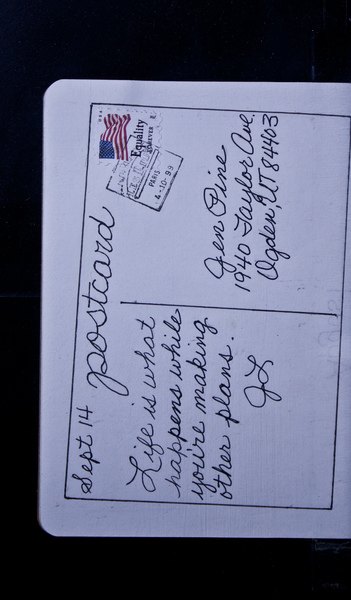 Sept 14
postcard
Equality
FOREVER
PARIS
4-10-99
Life is what
happens while
you're making
other plans.
JL
Jen Pine
1940 Taylor Ave.
Ogden, UT 84403